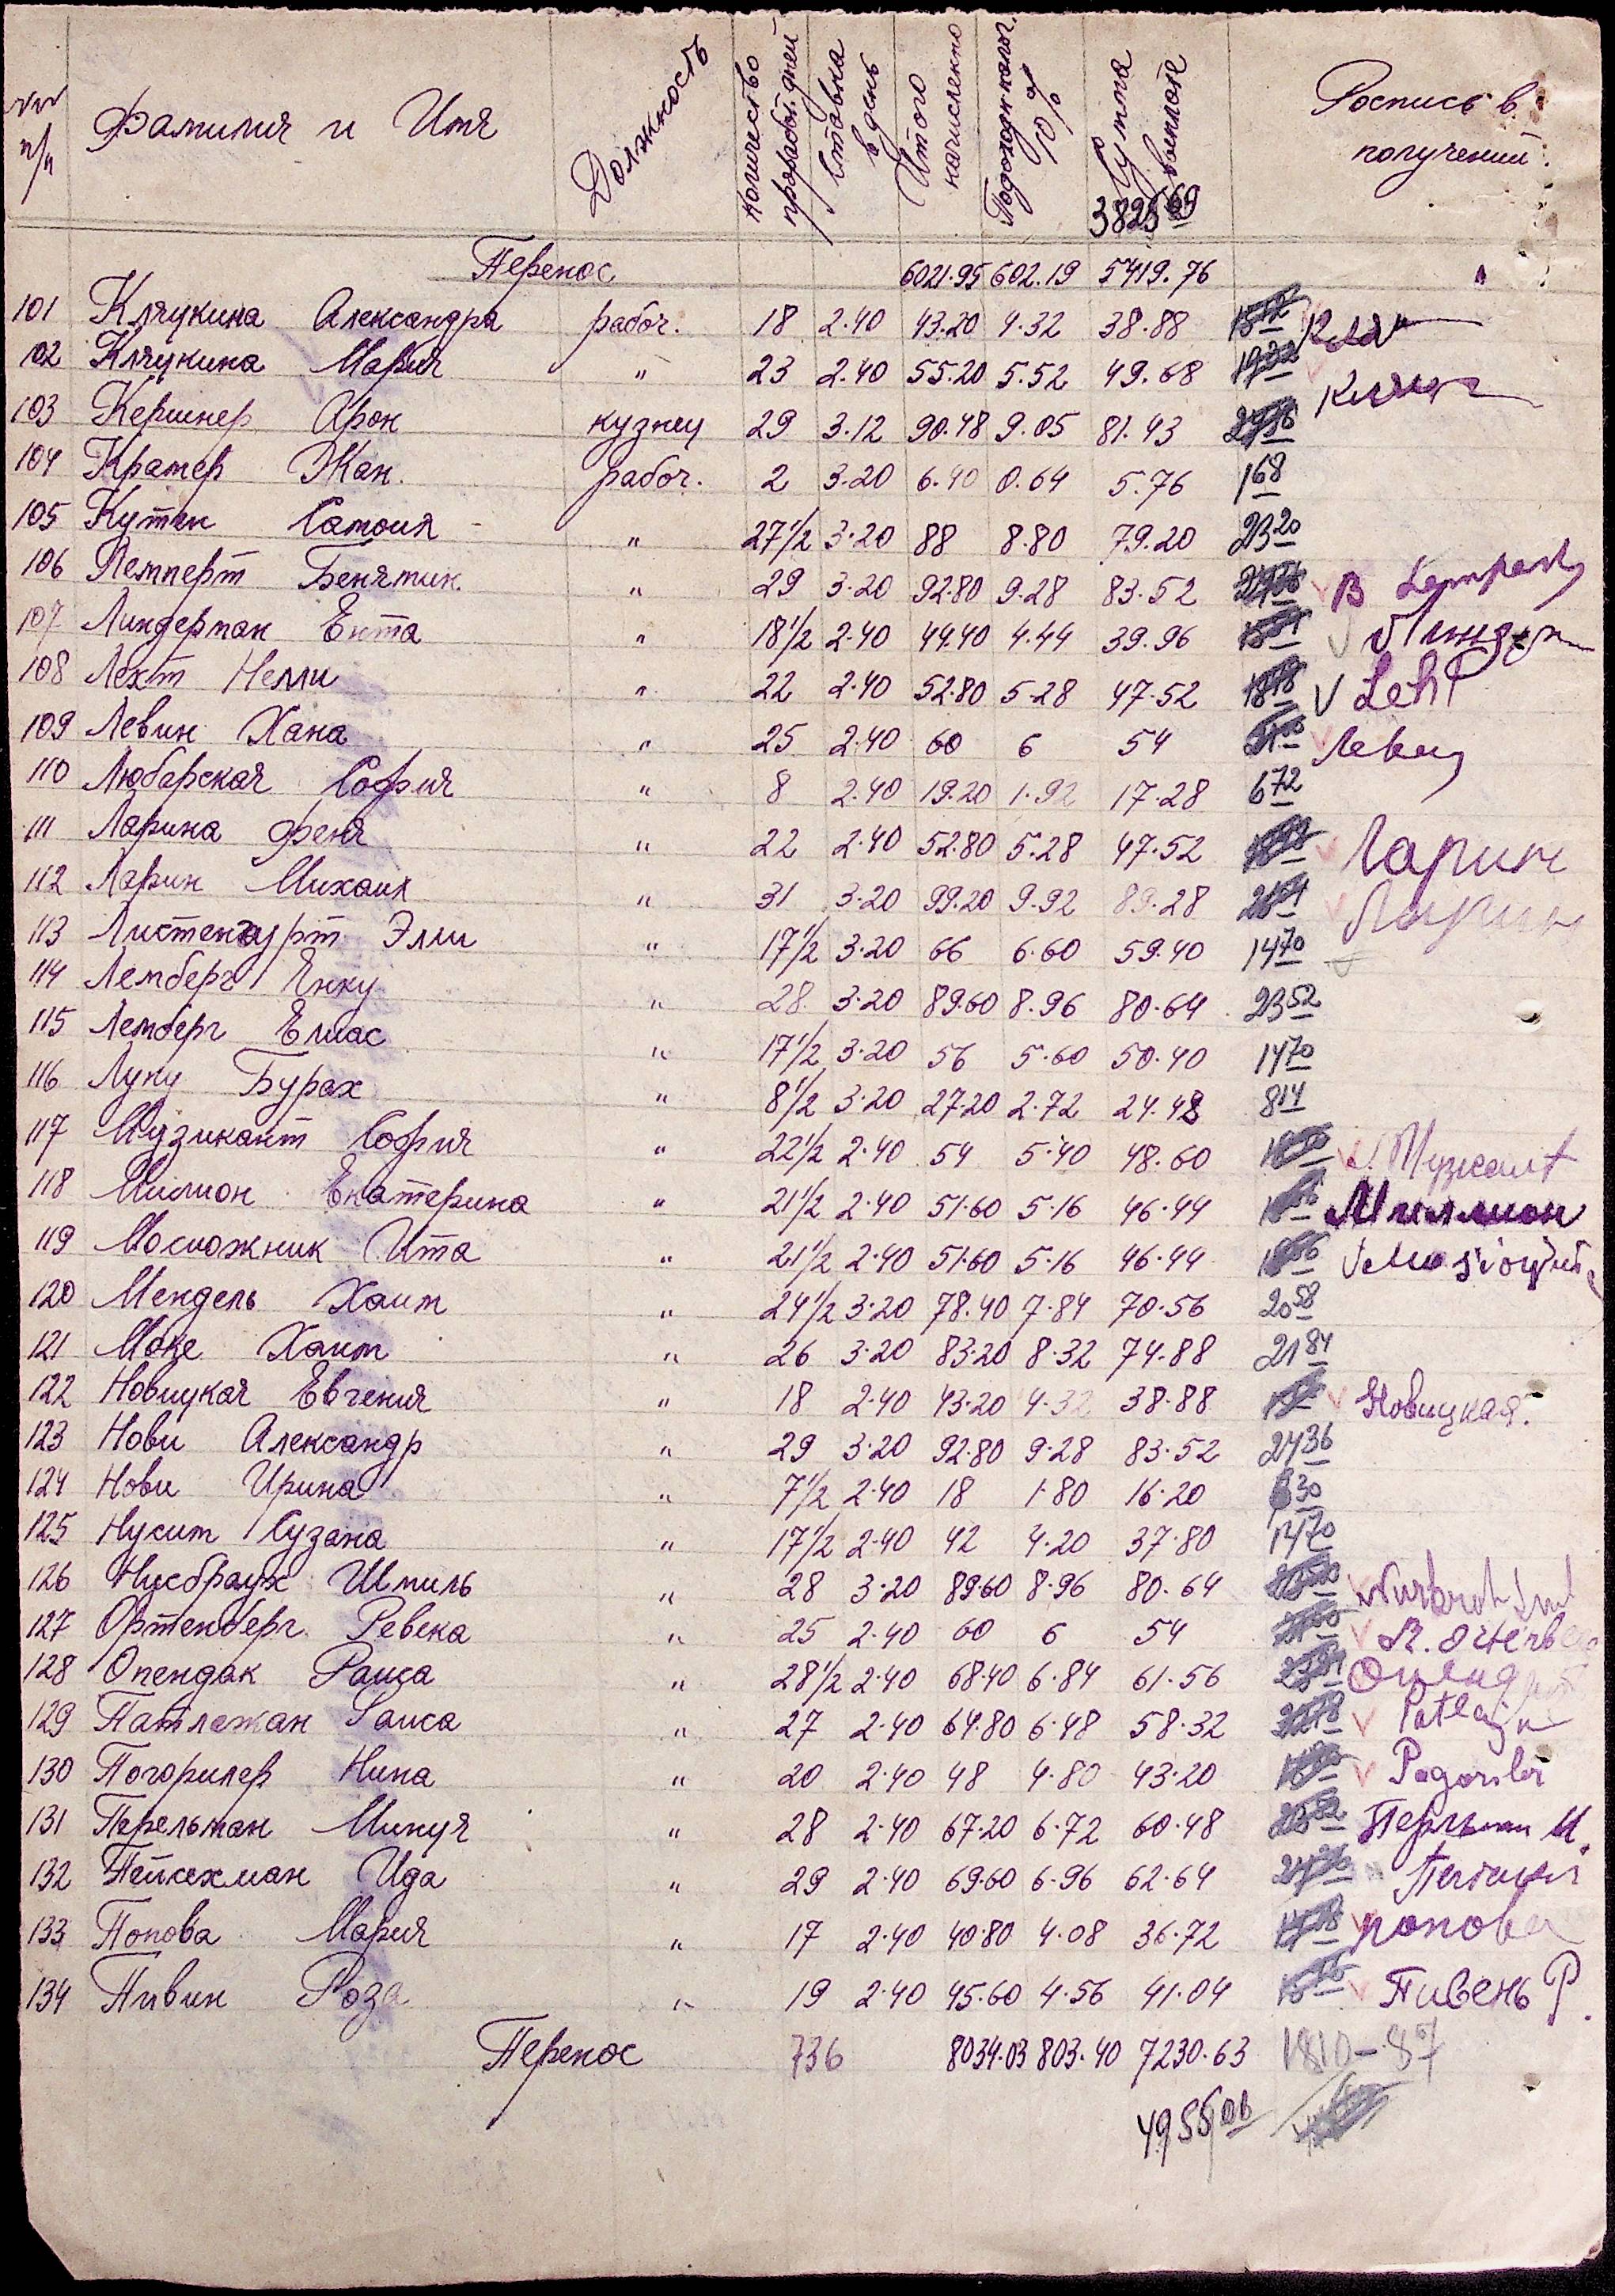 №№ п/п Фамилия и Имя Должность Количество проработ. дней Ставка в день Итого начислено Подоходн. налог 10% Сумма к выплате Роспись в получении
3825 69
Перенос 6021.95 602.19 5419.76
101 Клячкина Александра рабоч. 18 2.40 43.20 4.32 38.88
102 Клячкина Мария " 23 2.40 55.20 5.52 49.68
103 Кершнер Арон кузнец 29 3.12 90.48 9.05 81.43
104 Кратер Жан. рабоч. 2 3.20 6.40 0.64 5.76 1 68
105 Кутен Самоил " 27 1/2 3.20 88 8.80 79.20 23 20
106 Лемперт Бенямин. " 29 3.20 92.80 9.28 83.52 B Lempert
107 Линдерман Ента " 18 1/2 2.40 44.40 4.44 39.96
108 Лехт Нелли " 22 2.40 52.80 5.28 47.52 Leht
109 Левин Хана " 25 2.40 60 6 54 Левин
110 Любарская София " 8 2.40 19.20 1.92 17.28 6 72
111 Ларина Феня " 22 2.40 52.80 5.28 47.52 Ларин
112 Ларин Михаил " 31 3.20 99.20 9.92 89.28 Ларин
113 Листенгурт Элли " 17 1/2 3.20 66 6.60 59.40 14 70
114 Лемберг Янку " 28 3.20 89.60 8.96 80.64 23 52
115 Лемберг Елиас " 17 1/2 3.20 56 5.60 50.40 14 70
116 Луку Бурах " 8 1/2 3.20 27.20 2.72 24.48 8 14
117 Музикант София " 22 1/2 2.40 54 5.40 48.60
118 Милион Екатерина " 21 1/2 2.40 51.60 5.16 46.44 Миллион
119 Мосиожник Ита " 21 1/2 2.40 51.60 5.16 46.44
120 Мендель Хаим " 24 1/2 3.20 78.40 7.84 70.56 20 58
121 Моке Хаим " 26 3.20 83.20 8.32 74.88 21 84
122 Новицкая Евгения " 18 2.40 43.20 4.32 38.88 Новицкая.
123 Нови Александр " 29 3.20 92.80 9.28 83.52 24 36
124 Нови Ирина " 7 1/2 2.40 18 1.80 16.20 6 30
125 Нухим Сузана " 17 1/2 2.40 42 4.20 37.80 14 70
126 Нусбраух Шмиль " 28 3.20 89.60 8.96 80.64
127 Ортенберг Ревека " 25 2.40 60 6 54
128 Опендак Раиса " 28 1/2 2.40 68.40 6.84 61.56
129 Патлежан Раиса " 27 2.40 64.80 6.48 58.32
130 Погорилер Нина " 20 2.40 48 4.80 43.20
131 Перельман Минуя " 28 2.40 67.20 6.72 60.48
132 Пейсехман Ида " 29 2.40 69.60 6.96 62.64
133 Попова Мария " 17 2.40 40.80 4.08 36.72 попова
134 Пивин Роза " 19 2.40 45.60 4.56 41.04 Пивень Р.
Перенос 736 8034.03 803.40 7230.63 1810-87
4955 06